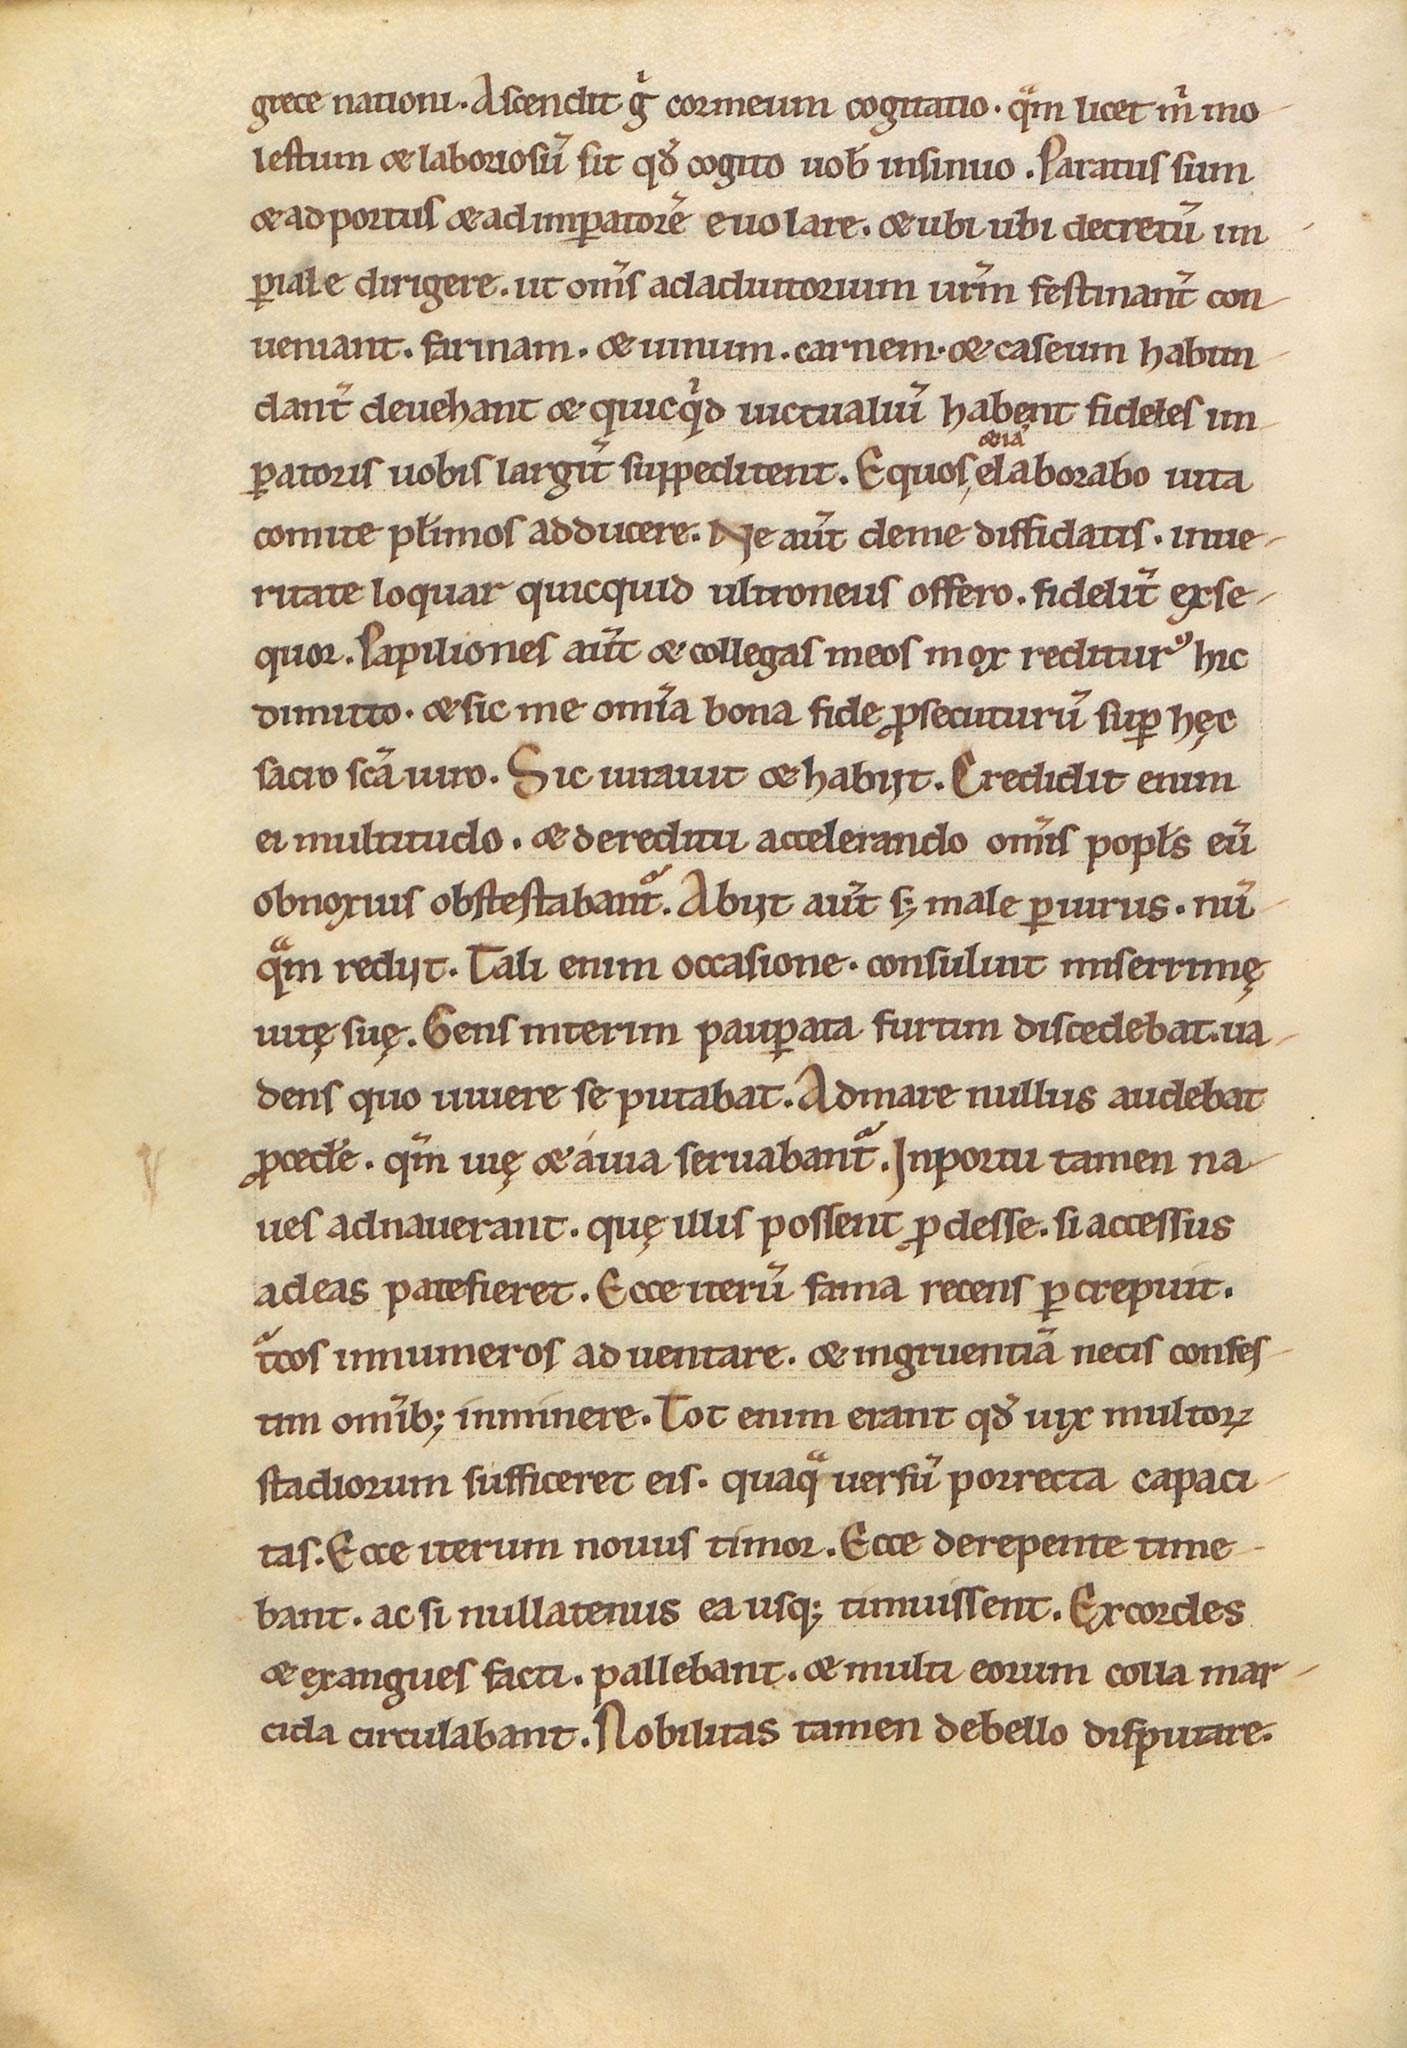 grece nationi. Ascendit g̍ cormeum cogitatio. qm̄ licet m̍ mo
lestum & laboriosū sit qđ cogito uob̄ insinuo. Paratus sum
& ad portus & ad imꝑatorē euolare. & ubi ubi decretū im
ꝑiale dirigere. ut om̄s adadiutorium ur̄m festinant̄ con
ueniant. farinam. & uinum. carnem. & caseum habun
dant̄ deuehant & quicq̍d uictualiū habent fideles im
ꝑatoris uobis largit̄ suppeditent. Equos, &iā elaborabo uita
comite pl̄imos adducere. Ne aūt deme diffidatis. inue
ritate loquar quicquid ultroneus offero. fidelit̄ exse
quor. Papiliones aūt & collegas meos mox rediturꝰ hic
dimitto. & sic me omīa bona fide ꝓsecuturū suꝑ hęc
sacro scā iuro. Sic iurauit & habijt. Credidit enim
ei multitudo. & dereditu accelerando om̄is popl̄s eū
obnoxius obstestabant᷑. Abijt aūt sꝫ male ꝑiurus. nū
qᵃm redijt. Tali enim occasione. consuluit miserrimę
uitę suę. Gens interim pauꝑata furtim discedebat. ua
dens quo uiuere se putabat. Admare nullus audebat
ꝓcedẽ. qm̄ uię & áuia seruabant᷑. Inportu tamen na
ues adnauerant. quę illis possent ꝓdesse. si accessus
adeas patefieret. Ecce iterū fama recens ꝑcrepuit.
t᷑cos innumeros aduentare. & ingruentiā necis confes
tim omīb; inminere. Tot enim erant qđ uix multoꝝ
stadiorum sufficeret eis. quaqᵃ uersū porrecta capaci
tas. Ecce iterum nouus timor. Ecce derepente time
bant. ac si nullatenus ea usq; timuissent. Excordes
& exangues facti. pallebant. & multi eorum colla mar
cida circulabant. Nobilitas tamen debello disputare.